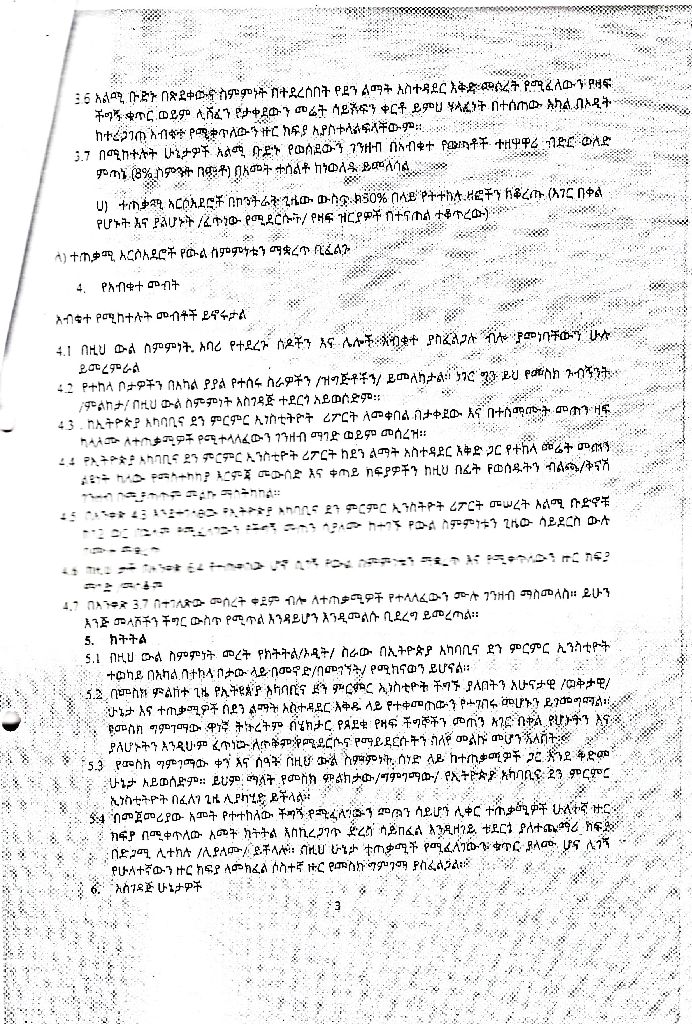 3.6 አልሚ ቡድኑ በጽደቀውና ስምምነት በተደረሰበት የደን ልማት አስተዳደር እቅድ መሰረት የሚፈለውን የዛፍ
ችግኝ ቁጥር ወይም ሊሸፈን የታቀደውን መሬት ሳይሸፍን ቀርቶ ይምህ ሃላፊነት በተሰጠው አካል በኦዲት
ከተረጋገጠ አብቁተ የሚቀጥለውን ዙር ክፍያ አያስተላልፍላቸውም።
3.7 በሚከተሉት ሁኔታዎች አልሚ ቡድኑ የወሰደውን ገንዘብ በአብቁተ የወጣቶች ተዘዋዋሪ ብድር ወለድ
ምጣኔ (8% ስምንት በመቶ) በአመት ተሰልቶ ከነወለዱ ይመለሳል
ሀ) ተጠቃሚ አርሶአደሮች በኮንትራት ጊዜው ውስጥ ከ50% በላይ የተተከሉ ዛፎችን ከቆረጡ (አገር በቀል
የሆኑት እና ያልሆኑት /ፈጥነው የሚደርሱት/ የዛፍ ዝርያዎች በተናጠል ተቆጥረው)
ለ) ተጠቃሚ አርሶአደሮች የውል ስምምነቱን ማቋረጥ ቢፈልጉ
4. የአብቁተ መብት
አብቁተ የሚከተሉት መብቶች ይኖሩታል
4.1 በዚህ ውል ስምምነት አባሪ የተደረጉ ሰዶችን እና ሌሎች አብቁተ ያስፈልጋሉ ብሎ ያመነባቸውን ሁሉ
ይመረምራል
4.2 የተከላ ቦታዎችን በአካል ያያል የተሰሩ ስራዎችን /ዝግጅቶችን/ ይመለከታል። ነገር ግን ይህ የመስክ ጉብኝት
/ምልከታ/ በዚህ ውል ስምምነት አስገዳጅ ተደርጎ አይወሰድም።
4.3 ከኢትዮጵያ አካባቢና ደን ምርምር ኢንስቲትዮት ሪፖርት ለመቀበል በታቀደው እና በተስማሙት መጠን ዛፍ
ካላለሙ ለተጠቃሚዎች የሚተላለፈውን ገንዘብ ማገድ ወይም መሰረዝ።
4.4 የኢትዮጵያ አካባቢና ደን ምርምር ኢንስቲዮት ሪፖርት ከደን ልማት አስተዳደር እቅድ ጋር የተከላ መሬት መጠን
ልዩነት ካለው የማስተካከያ እርምጃ መውሰድ እና ቀጣይ ክፍያዎችን ከዚህ በፊት የወሰዱትን ብልጫ/ቅናሽ
ገንዘብ በሚያጣጥም መልኩ ማስተካከል።
4.5 በአንቀጽ 4.3 እንደተገለፀው የኢትዮጵያ አካባቢና ደን ምርምር ኢንስትዮት ሪፖርት መሠረት አልሚ ቡድኖቹ
የሚፈለገውን የችግኝ መጠን ሳያለሙ ከተገኙ የውል ስምምነቱን ጊዜው ሳይደርስ ውሉ
4.6 በአንቀጽ 6.4 የተጠቀሰው ሆኖ ሲገኝ የውል ስምምነቱን ማቋረጥ እና የሚቀጥለውን ዙር ክፍያ
4.7 በአንቀጽ 3.7 በተገለጸው መሰረት ቀደም ብሎ ለተጠቃሚዎች የተላለፈውን ሙሉ ገንዘብ ማስመለስ። ይሁን
እንጅ መላሾችን ችግር ውስጥ የሚጥል እንዳይሆን እንዲመልሱ ቢደረግ ይመረጣል።
5. ክትትል
5.1 በዚህ ውል ስምምነት መረት የክትትል/ኦዲት/ ስራው በኢትዮጵያ አካባቢና ደን ምርምር ኢንስቲዮት
ተወካይ በአካል በተከላ ቦታው ላይ በመኖድ/በመገኘት/ የሚከናወን ይሆናል።
5.2 በመስክ ምልከተ ጊዜ የኢትዩጵያ አካባቢና ደን ምርምር ኢንስቲዮት ችግኙ ያለበትን አሁናታዊ /ወቅታዊ/
ሁኔታ እና ተጠቃሚዎች በደን ልማት አስተዳደር እቅዱ ላይ የተቀመጠውን የተገበሩ መሆኑን ይገመግማል።
የመስክ ግምገማው ዋነኛ ትኩረትም በሄክታር የጸደቁ የዛፍ ችግኞችን መጠን አገር በቀል የሆኑትን እና
ያለሆኑትን እንዲሁም ፈጥነው ለጥቅም የሚደርሱና የማይደርሱትን በለየ መልኩ መሆን አለበት።
5.3 የመስክ ግምገማው ቀን እና ሰዓት በዚህ ውል ስምምነት ሰነድ ላይ ከተጠቃሚዎች ጋር እንደ ቅድመ
ሁኔታ አይወሰድም። ይህም ማለት የመስክ ምልክታው/ግምገማው/ የኢትዮጵያ አካባቢና ደን ምርምር
ኢንስቲትዮት በፈለገ ጊዜ ሊያካሂድ ይችላል።
5.4 በመጀመሪያው አመት የተተከለው ችግኝ የሚፈለገውን መጠን ሳይሆን ሊቀር ተጠቃሚዎች ሁለተኛ ዙር
ክፍያ በሚቀጥለው አመት ክትትል እስኪረጋገጥ ድረስ ሳይከፈል እንዲዘገይ ተደርጎ ያለተጨማሪ ክፍያ
በድጋሚ ሊተክሉ /ሊያለሙ/ ይችላሉ። በዚህ ሁኔታ ተጠቃሚች የሚፈለገውን ቁጥር ያለሙ ሆኖ ሲገኝ
የሁለተኛውን ዙር ክፍያ ለመክፈል ሶስተኛ ዙር የመስክ ግምገማ ያስፈልጋል።
6. አስገዳጅ ሁኔታዎች
3